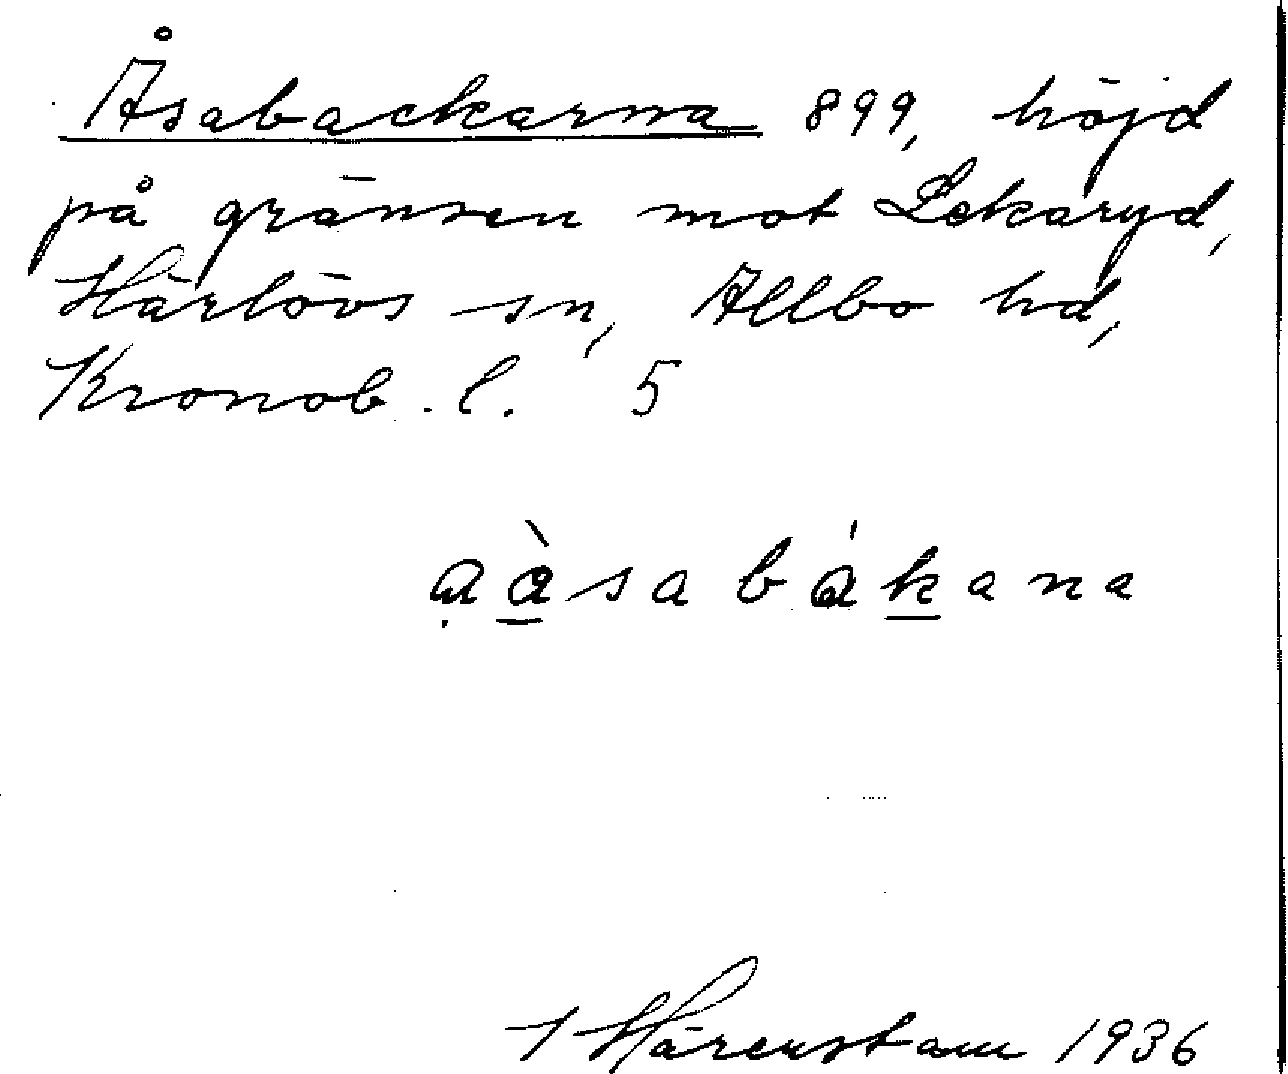 Åsabackarna 899, höjd
på gränsen mot Lekaryd,
Härlövs sn, Allbo hd,
Kronob. l. 5
ạà̱sabáḵana
I Härenstam 1936